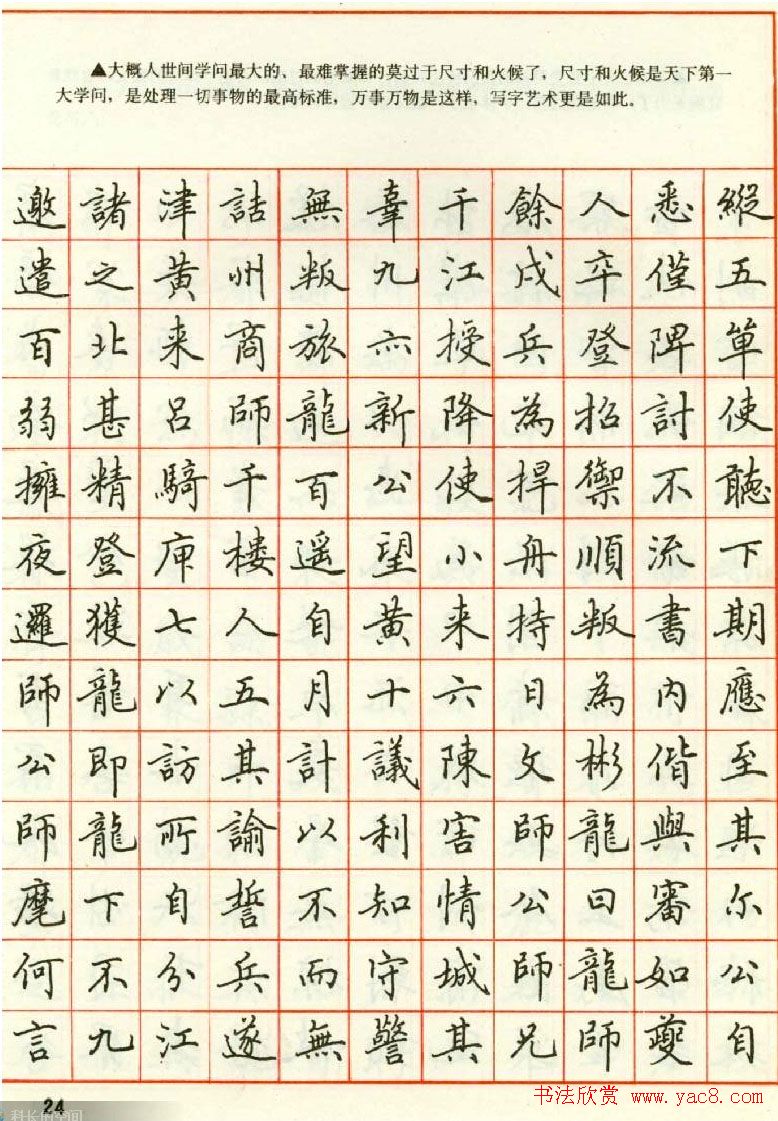 ▲大概人世间学问最大的、最难掌握的莫过于尺寸和火候了，尺寸和火候是天下第一
大学问，是处理一切事物的最高标准，万事万物是这样，写字艺术更是如此。
邀諸津詰無辜千餘人悉縱
遣之黃州叛九江戍卒僅五
百北来商旅亦授兵登陴單
弱甚呂師龍新降為招討使
擁精騎千百公使捍禦不聽
夜登庾楼遥望小舟順流下
邏獲七人自黃来持叛書期
師龍以五月十六日為内應
公即訪其計議陳文彬偕至
師龍所諭以利害師龍與其
麾下自誓不知情公曰審尔
何不分兵而守城師龍如公
言九江遂無警其兄師夔自
24
科长的空间
书法欣赏 www.yac8.com